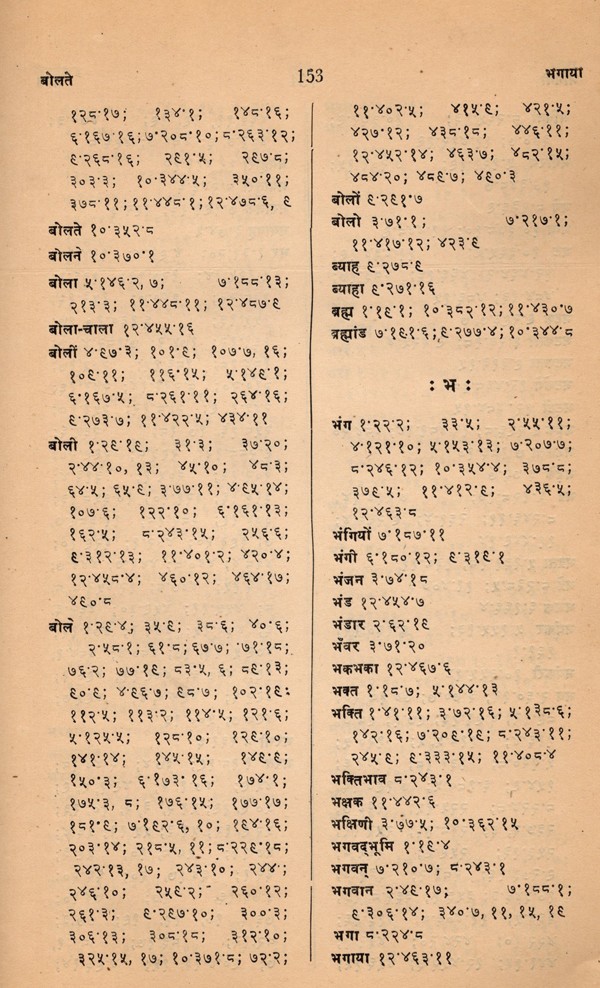 बोलते 153 भगाया
१२८·१७; १३४·१; १४८·१६;
६·१६७·१६; ७·२०८·१०; ८·२६३·१२;
९·२६८·१६; २९१·५; २९७·८;
३०३·३; १०·३४४·५; ३५०·११;
३७८·११; ११·४४८·१; १२·४७८·६, ९
बोलते १०·३५२·८
बोलने १०·३७०·१
बोला ५·१४६·२, ७; ७·१८८·१३;
२१३·३; ११·४४८·११; १२·४८७·९
बोला-चाला १२·४५५·१६
बोलीं ४·९७·३; १०१·९; १०७·७, १६;
१०९·११; ११६·१५; ५·१४९·१;
६·१६७·५; ८·२६१·११; २६४·१६;
९·२७३·७; ११·४२२·५; ४३४·११
बोली १·२९·१९; ३१·३; ३७·२०;
२·४४·१०, १३; ४५·१०; ४८·३;
६४·५; ६५·९; ३·७७·११; ४·९५·१४;
१०७·६; १२२·१०; ६·१६१·१३;
१६२·५; ८·२४३·१५; २५६·६;
९·३१२·१३; ११·४०१·२; ४२०·४;
१२·४५८·४; ४६०·१२; ४६४·१७;
४९०·८
बोले १·२९·४; ३५·९; ३८·६; ४०·६;
२·५८·१; ६१·८; ६७·७; ७१·१८;
७६·२; ७७·१९; ८३·५, ६; ८९·१३;
९०·९; ४·९६·७; ९८·७; १०२·१९;
११२·५; ११३·२; ११४·५; १२१·६;
५·१२५·५; १२८·१०; १२९·१०;
१४१·१४; १४५·१५; १४९·९;
१५०·३; ६·१७३·१६; १७४·१;
१७५·३, ८; १७६·१५; १७७·१७;
१८१·९; ७·१९२·६, १०; १९४·१६;
२०३·१४; २१८·५, ११; ८·२२९·१८;
२४२·१३, १७; २४३·१०; २४४·;
२४६·१०; २५९·२; २६०·१२;
२६१·३; ९·२९७·१०; ३००·३;
३०६·१३; ३०८·१८; ३१२·१०;
३२५·१५, १७; १०·३७१·८; ७२·२;
११·४०२·५; ४१५·९; ४२१·५;
४२७·१२; ४३८·१८; ४४६·११;
१२·४५२·१४; ४६३·७; ४८२·१५;
४८४·२०; ४८९·७; ४९०·३
बोलों ९·२९१·७
बोलो ३·७१·१; ७·२१७·१;
११·४१७·१२; ४२३·९
ब्याह ९·२७८·९
ब्याहा ९·२७१·१६
ब्रह्म १·१९·१; १०·३८२·१२; ११·४३०·७
ब्रह्मांड ७·१९१·६; ९·२७७·४; १०·३४४·८
: भ :
भंग १·२२·२; ३३·५; २·५५·११;
४·१२१·१०; ५·१५३·१३; ७·२०७·७;
८·२४६·१२; १०·३५४·४; ३७८·८;
३७९·५; ११·४१२·९; ४३६·५;
१२·४६३·८
भंगियों ७·१८७·११
भंगी ६·१८०·१२; ९·३१९·१
भंजन ३·७४·१८
भंड १२·४५४·७
भंडार २·६२·१९
भँवर ३·७१·२०
भकभका १२·४६७·६
भक्त १·१८·७; ५·१४४·१३
भक्ति १·४१·११; ३·७२·१६; ५·१३८·६;
१४२·१६; ७·२०९·१९; ८·२४३·११;
२४५·९; ९·३३३·१५; ११·४०८·४
भक्तिभाव ८·२४३·१
भक्षक ११·४४२·६
भक्षिणी ३·७७·५; १०·३६२·१५
भगवद्भूमि १·१९·४
भगवन् ७·२१०·७; ८·२४३·१
भगवान २·४९·१७; ७·१८८·१;
९·३०६·१४; ३४०·७, ११, १५, १९
भगा ८·२२४·८
भगाया १२·४६३·११